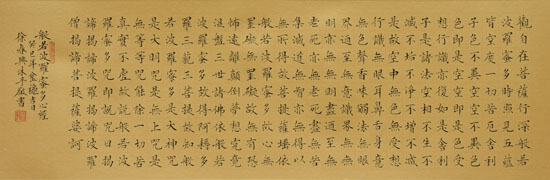 觀自在菩薩行深般若
波羅蜜多時照見五蘊
皆空度一切苦厄舍利
子色不異空空不異色
色即是空空即是色受
想行識亦復如是舍利
子是諸法空相不生不
滅不垢不淨不增不減
是故空中無色無受想
行識無眼耳鼻舌身意
無色聲香味觸法無眼
界乃至無意識界無無
明亦無無明盡乃至無
老死亦無老死盡無苦
集滅道無智亦無得以
無所得故菩提薩埵依
般若波羅蜜多故心無
罣礙無罣礙故無有恐
怖遠離顛倒夢想究竟
涅槃三世諸佛依般若
波羅蜜多故得阿耨多
羅三藐三菩提故知般
若波羅蜜多是大神咒
是大明咒是無上咒是
無等等咒能除一切苦
真實不虛故說般若波
羅蜜多咒即說咒曰揭
諦揭諦波羅揭諦波羅
僧揭諦菩提薩婆訶
般若波羅蜜多心經
癸巳年吉日
徐春興沐手敬書